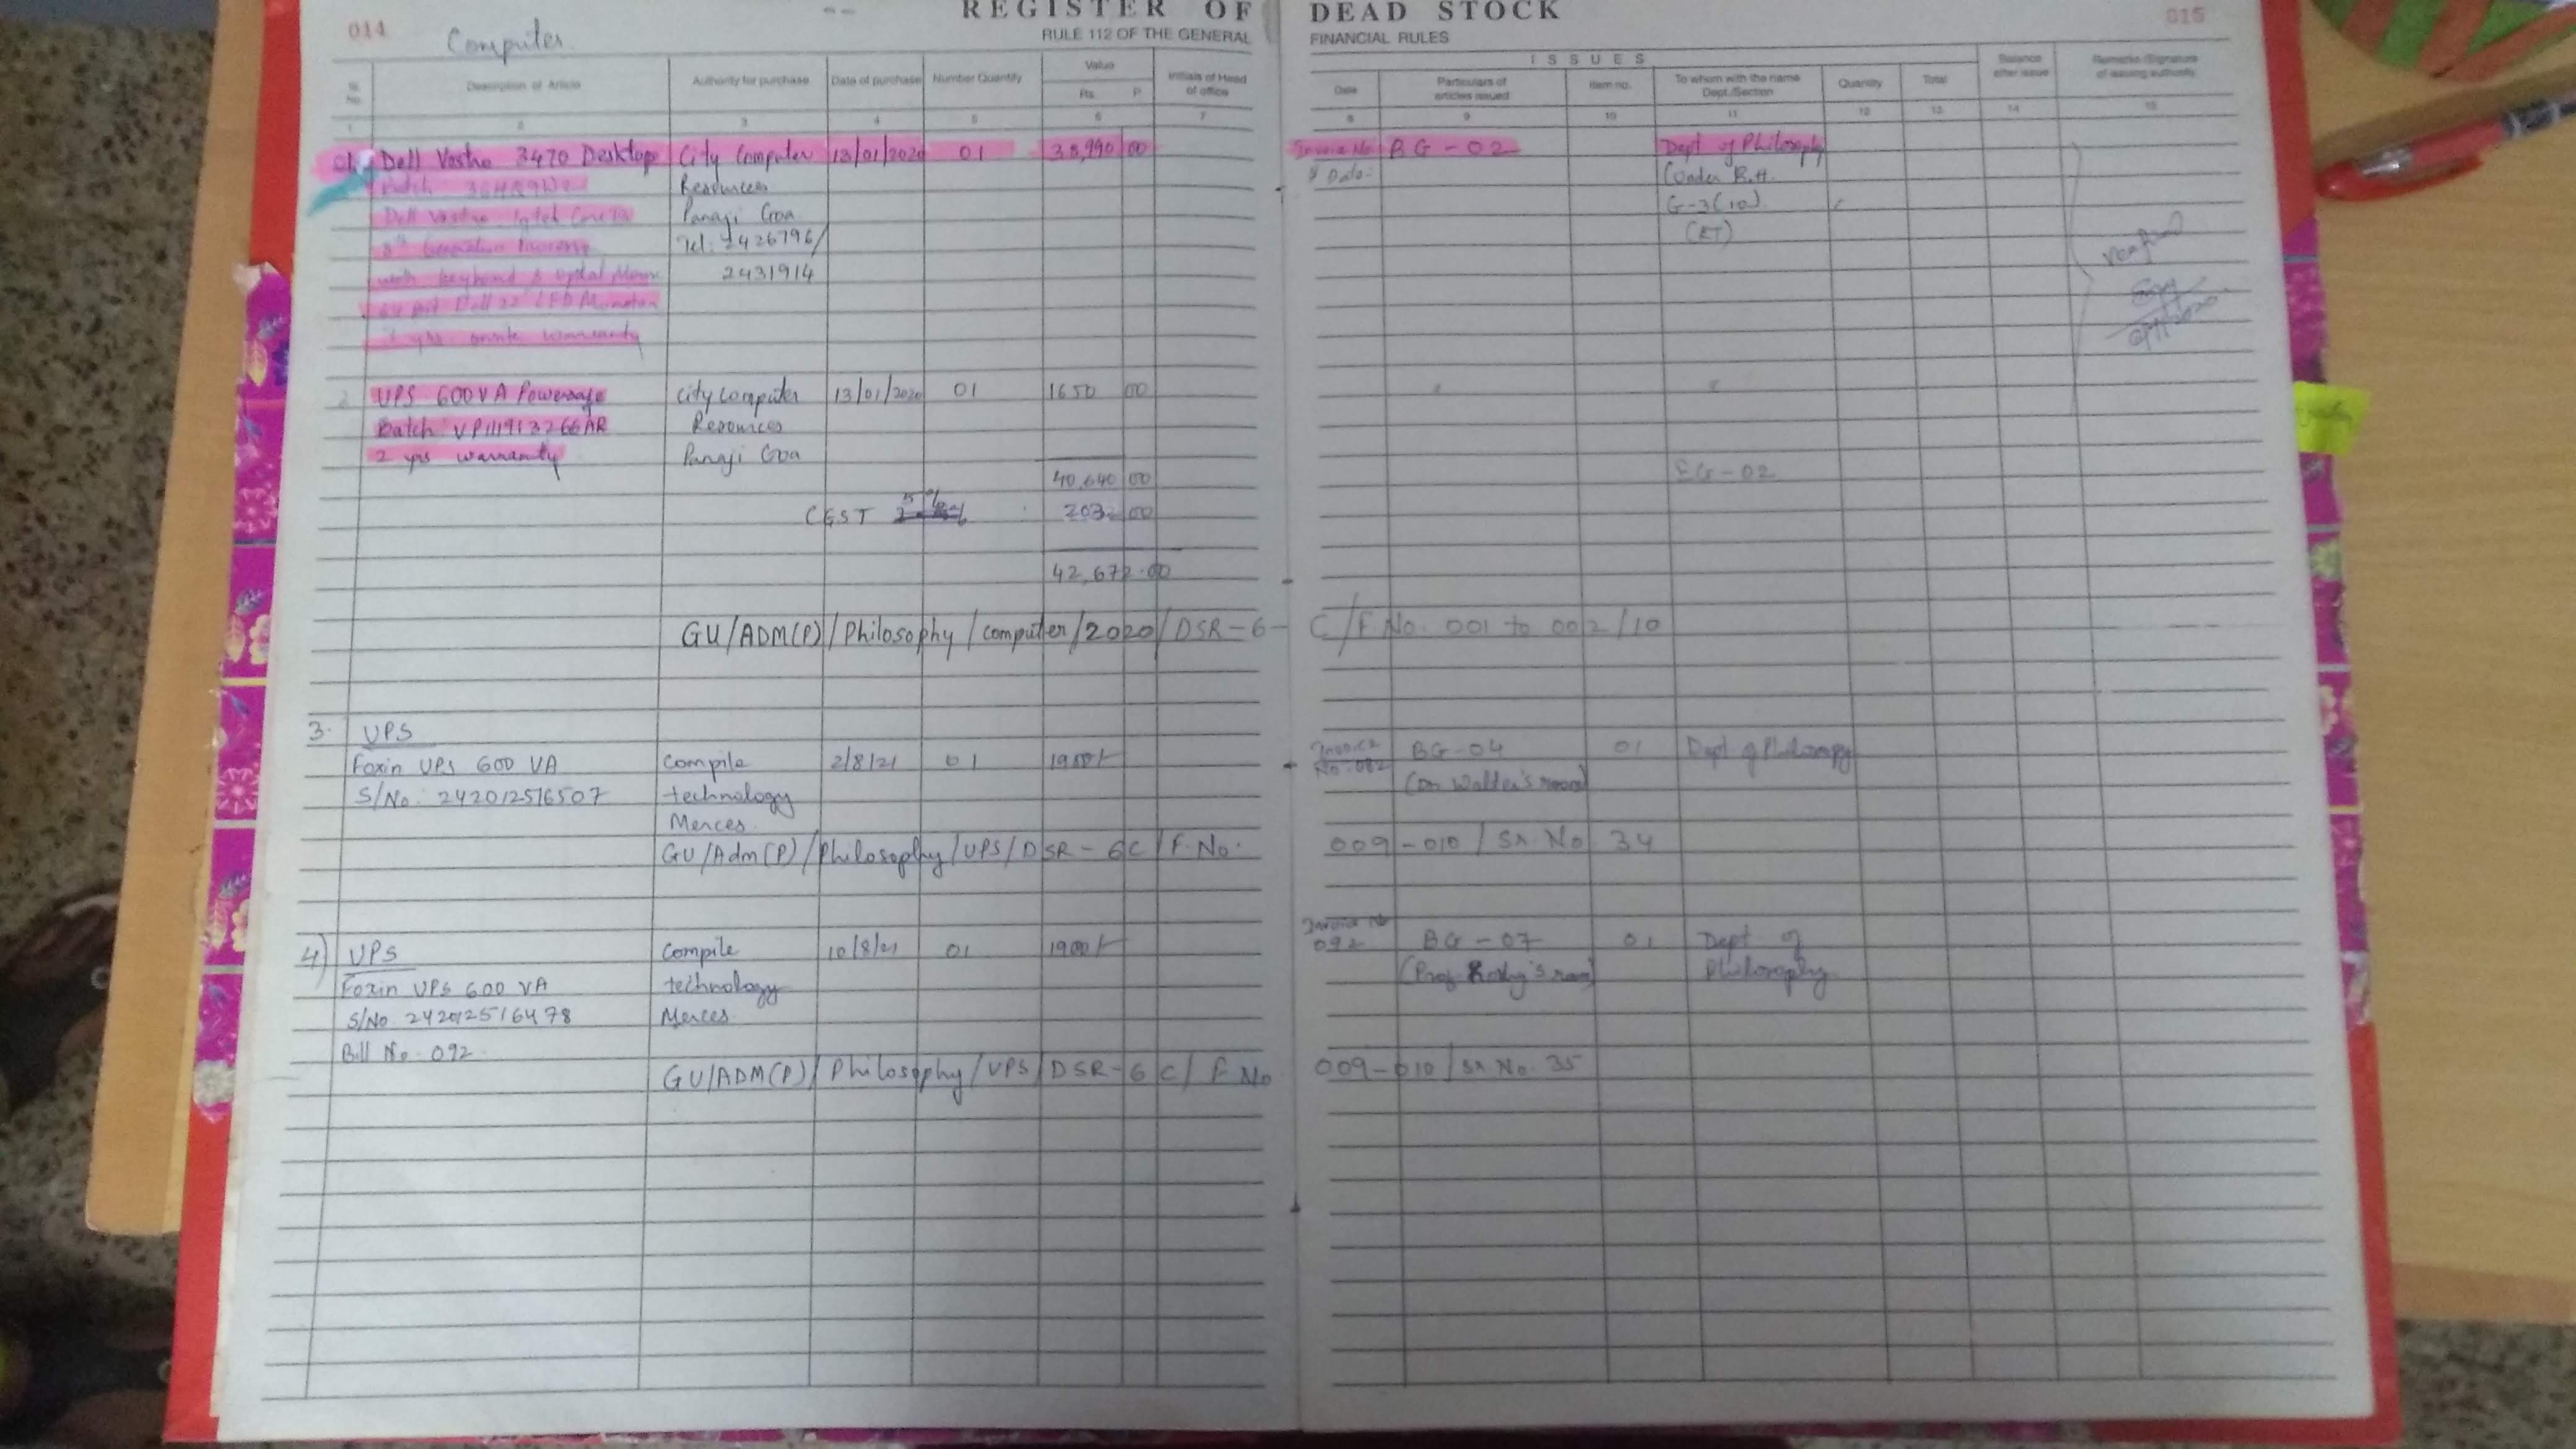 REGISTER OF DEAD STOCK
014
Computer
RULE 112 OF THE GENERAL FINANCIAL RULES
015
Sl. No.
Description of Article
Authority for purchase
Date of purchase
Number Quantity
Value
Rs. P.
Initials of Head of office
ISSUES
Date
Particulars of articles issued
Item no.
To whom with the name Dept./Section
Quantity
Total
Balance after issue
Remarks/Signature of issuing authority
1 2 3 4 5 6 7 8 9 10 11 12 13 14 15
Dell Vostro 3470 Desktop City Computer 13/01/2020 01 38,990 00 Invoice No BG-02 Dept of Philosophy
Batch Resources & Date: (Under B.H.
Dell Vostro Intel Core Panaji Goa G-3(10)
8th Generation Tel: 2426796/ (ET)
with keyboard & optical Mouse 2431914
Dell 22" LED Monitor
yrs onsite warranty
verified
2 UPS 600VA Powersafe City Computer 13/01/2020 01 1650 00
Batch VP111913266AR Resources
2 yrs warranty Panaji Goa
40,640 00 BG-02
CGST 5% 2032 00
42,672.00
GU/ADM(P)/Philosophy/computer/2020/DSR-6-C/F.No. 001 to 002/10
3. UPS
Foxin UPS 600 VA Compile 2/8/21 01 1900/- Invoice No. 082 BG-04 01 Dept of Philosophy
S/No: 242012516507 technology (Dr Walter's room)
Merces.
GU/Adm(P)/Philosophy/UPS/DSR-6C/F.No. 009-010/Sr No 34
4) UPS Compile 10/8/21 01 1900/- Invoice No 092 BG-07 01 Dept of
Foxin UPS 600 VA technology (Prof Koshy's room) Philosophy
S/No. 242012516478 Merces.
Bill No. 092
GU/ADM(P)/Philosophy/UPS/DSR-6C/F.No 009-010/Sr No. 35